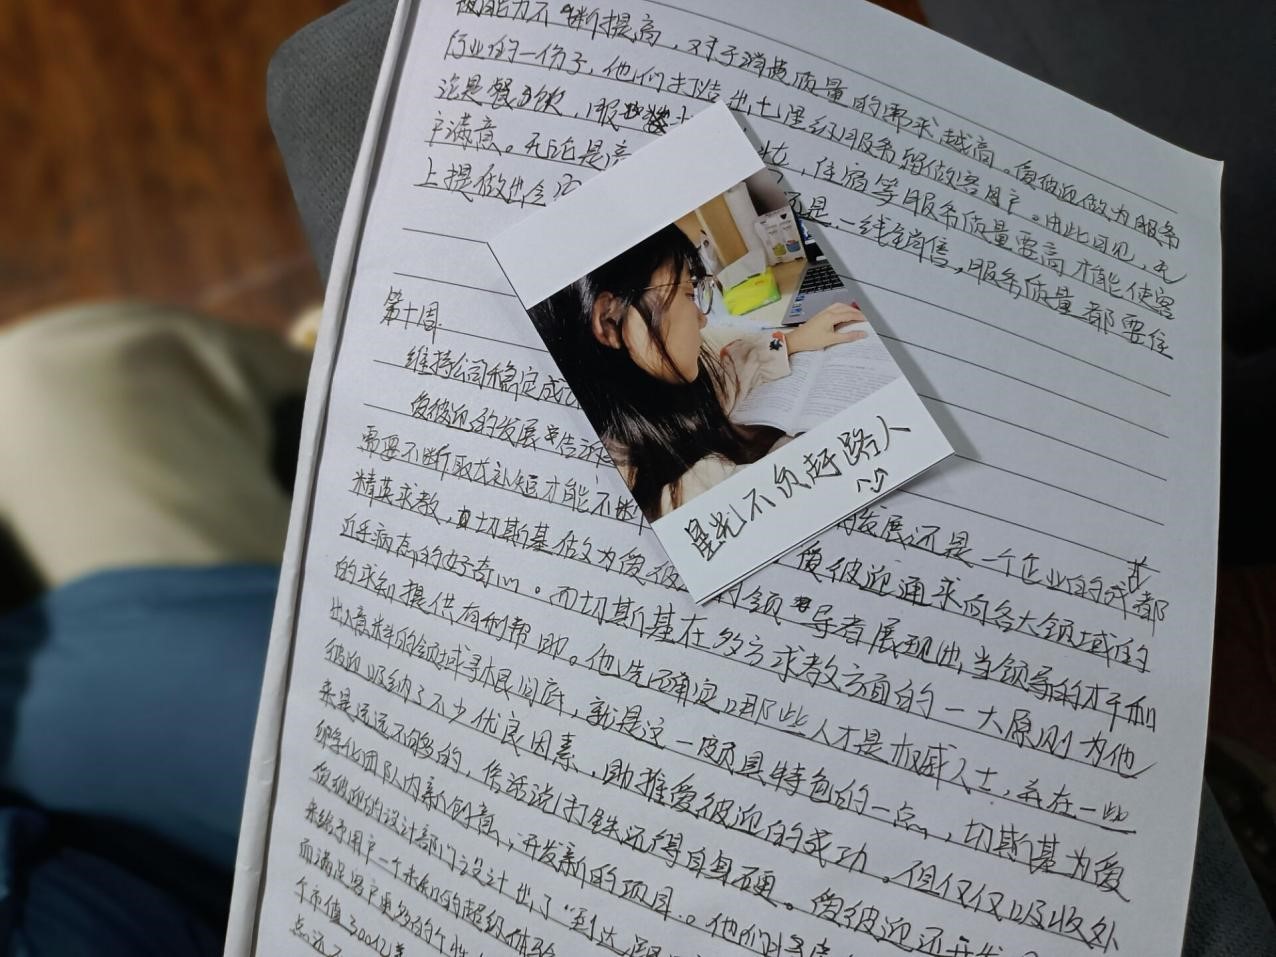 被能力不断提高，对于消费质量的需求越高。爱彼迎做为服务
行业的一份子，他们打造出七星级服务 客户。由此可见，无
论是餐饮，服 ，住宿等服务质量要高才能使客
户满意。无论是高 还是一线销售，服务质量都要往
上提做
第十周
维持公司稳定成
爱彼迎的发展 告 发展还是一个企业的成
需要不断取长补短才能不断 爱彼迎通 求向各大领域的
精英求教，切斯基做为爱彼 的领导者展现出当领导的才干和
近乎病态的好奇心。而切斯基在多方求教方面的一大原则为他
的求知提供有利帮助。他先确定哪些人才是权威人士，再在一些
出人意料的领域寻根问底，就是这一颇具特色的一点，切斯基为爱
彼迎吸纳了不少优良因素，助推爱彼迎的成功。但仅仅吸收外
来是远远不够的，俗话说打铁还得自身硬。爱彼迎还
化团队内新创意，开发新的项目。他们
爱彼迎的设计部门设计出了“到达
来给予用户一个 的超级体验
而满足客户更多的个性
个市值300亿美
点
星光不负赶路人